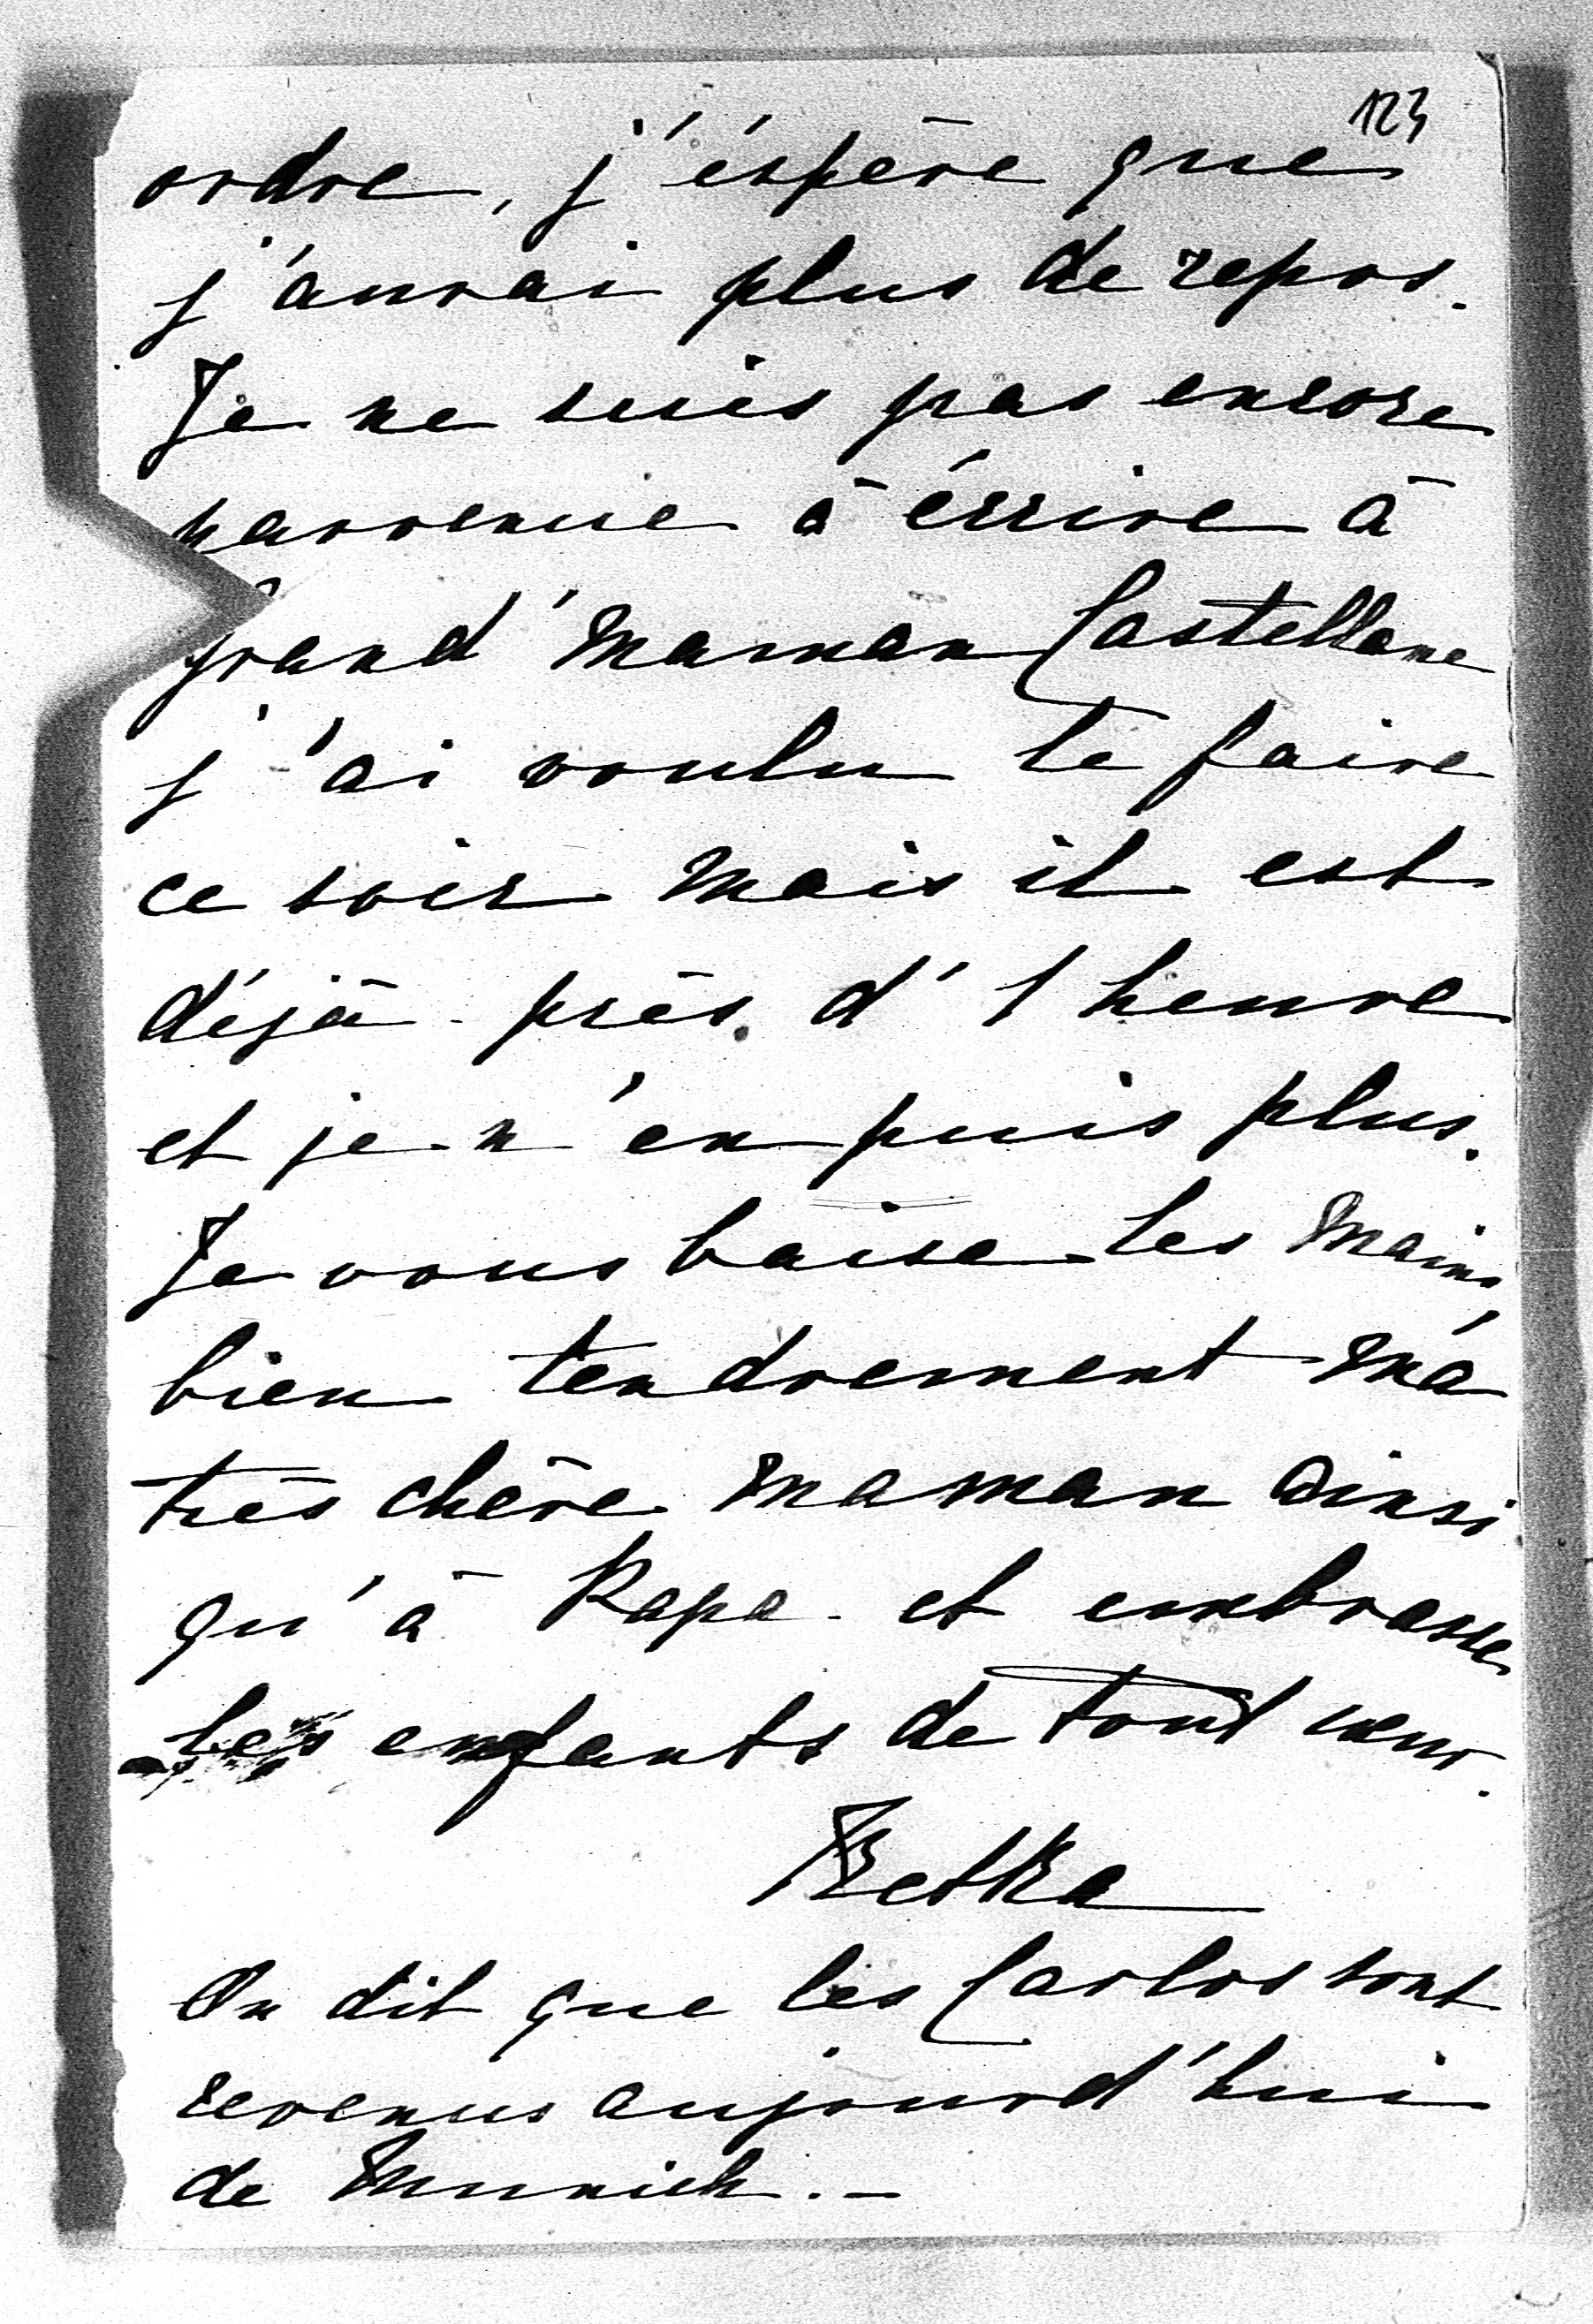 123
ordre, j'éspère que
j'aurai plus de repos.
Je ne suis pas encore
parvenue à écrire à
Grand'maman Castellane
j'ai voulu le faire
ce soir mais il est
déjà près d'1 heure
et je n'en puis plus.
Je vous baise les mains,
bien tendrement ma
très chère maman ainsi
qu'à Papa et embrasse
les enfants de tout cœur.
Betka
On dit que les Carlos sont
revenus aujourd'hui
de Munich.–